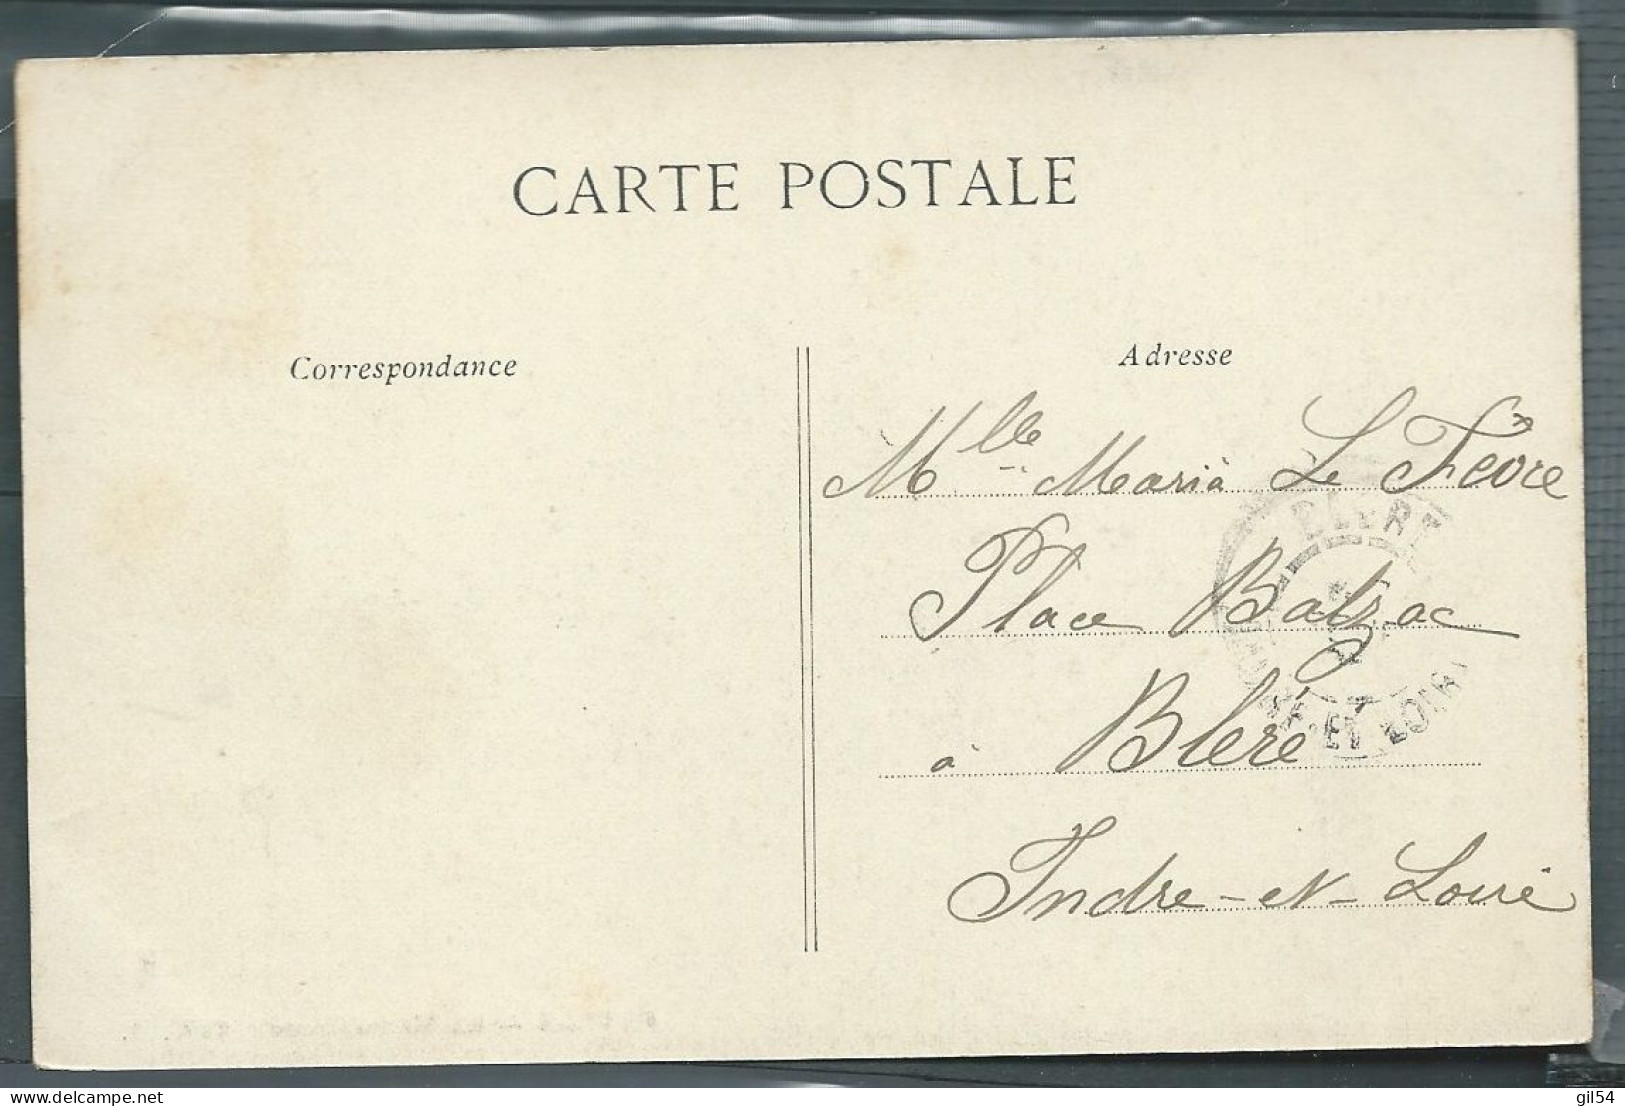 CARTE POSTALE
Correspondance
Adresse
Mlle Maria Le Fèvre
Place Balzac
à Bléré
Indre-et-Loire
BLERE
INDRE-ET-LOIRE
delcampe.net
gil54